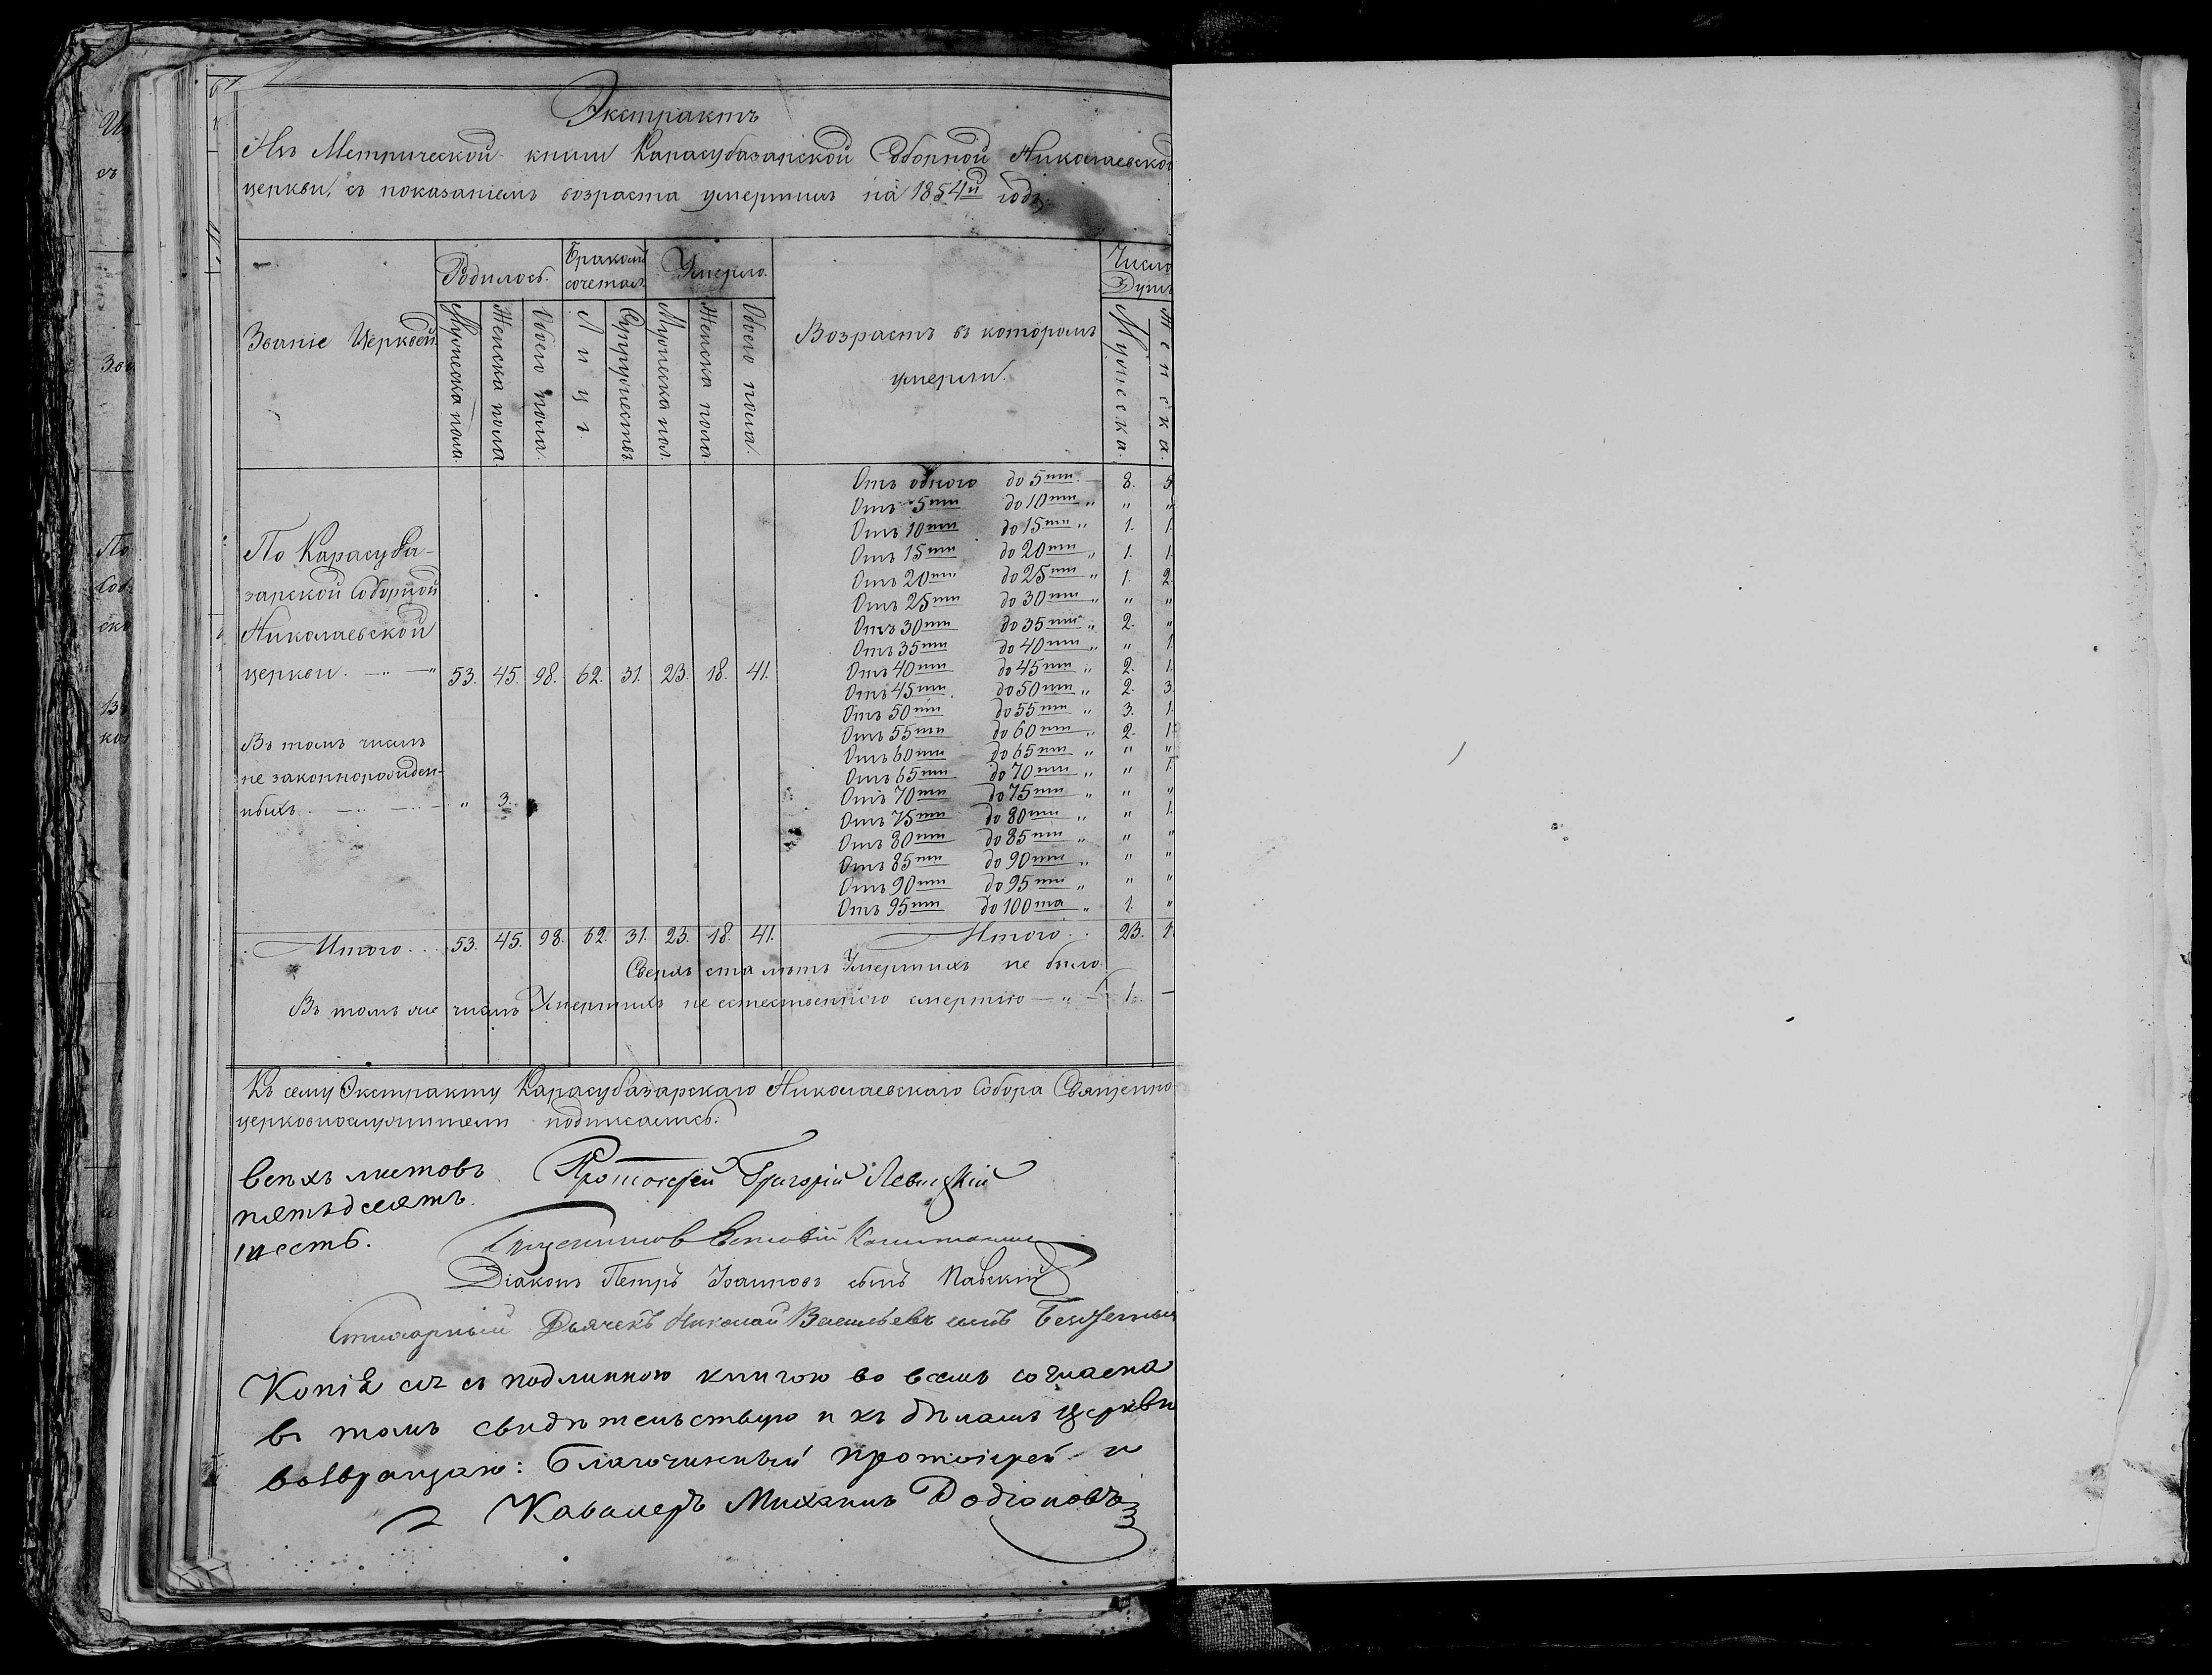 Экстрактъ
Изъ Метрической книги Карасубазарской Соборной Николаевской
церкви, съ показаніемъ возраста умершихъ на 1854й годъ.
Званіе Церквей
Родилось.
Бракомъ сочетал.
Умерло.
Возрастъ въ которомъ
умерли.
Число
Душъ
Мужеска пола.
Женска пола.
Обоего пола.
Лицъ.
Супружествъ
Мужеска пол.
Женска пола.
Обоего пола.
Мужеска.
Женска.
Отъ одного до 5ти. 8. 5
Отъ 5ти до 10ти " " "
Отъ 10ти до 15ти " 1. 1.
Отъ 15ти до 20ти " 1. 1.
Отъ 20ти до 25ти " 1. 2.
Отъ 25ти до 30ти " " "
Отъ 30ти до 35ти " 2. "
Отъ 35ти до 40ти " " 1.
Отъ 40ти до 45ти " 2. 1.
Отъ 45ти до 50ти " 2. 3.
Отъ 50ти до 55ти " 3. 1.
Отъ 55ти до 60ти " 2. 1.
Отъ 60ти до 65ти " " "
Отъ 65ти до 70ти " " 1.
Отъ 70ти до 75ти " " "
Отъ 75ти до 80ти " " 1.
Отъ 80ти до 85ти " " "
Отъ 85ти до 90ти " " "
Отъ 90ти до 95ти " " "
Отъ 95ти до 100та " 1. "
По Карасуба-
зарской Соборной
Николаевской
церкви. — " 53. 45. 98. 62. 31. 23. 18. 41.
Въ томъ числѣ
не законнорожден-
ныхъ — " 3.
Итого... 53. 45. 98. 62. 31. 23. 18. 41. Итого.. 23.
Сверхъ ста лѣтъ Умершихъ не было.
Въ томъ же числѣ Умершихъ не естественного смертію — " — 1. —
Къ сему Экстракту Карасубазарскаго Николаевскаго Собора Священно-
церковнослужители подписались:
Всѣхъ листовъ
пятьдесятъ
шесть.
Протоіерей Григорій Левицкій
Священникъ
Діаконъ Петръ Іоанновъ сынъ Павскій
Стихарный Дьячекъ Николай Васильевъ сынъ
Копія сія съ подлинною книгою во всемъ согласна
въ томъ свидѣтельствую и къ дѣламъ Церкви
возвращаю: Благочинный протоіерей и
Кавалеръ Михаилъ Родіоновъ